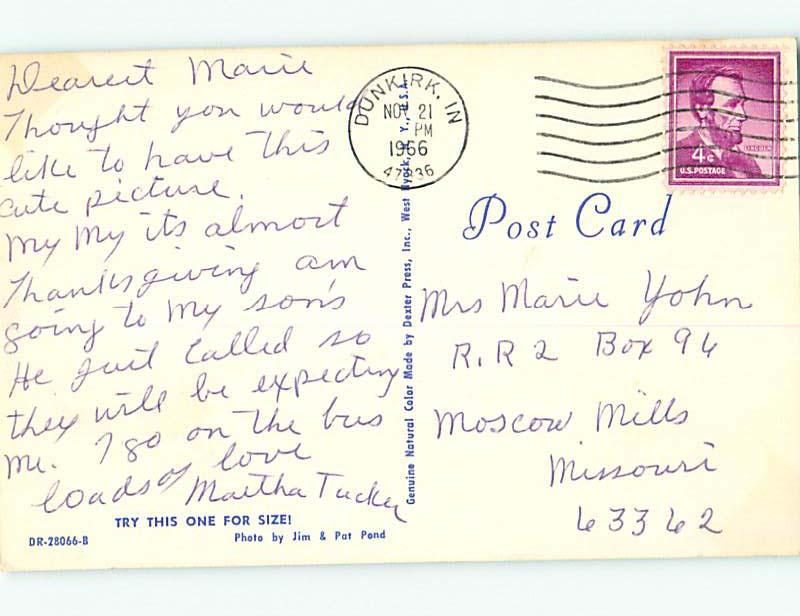 Dearest Marie
Thought you would
like to have this
cute picture.
My My its almost
Thanksgiving am
going to my son's
He just called so
they will be expecting
me. I go on the bus
loads of love
Martha Tucker
TRY THIS ONE FOR SIZE!
DR-28066-B
Photo by Jim & Pat Pond
Genuine Natural Color Made by Dexter Press, Inc., West Nyack, N. Y., U.S.A.
DUNKIRK, IN
NOV 21
PM
1966
47336
LINCOLN
4¢
U.S. POSTAGE
Post Card
Mrs Marie Yohn
R.R 2 Box 94
Moscow Mills
Missouri
63362